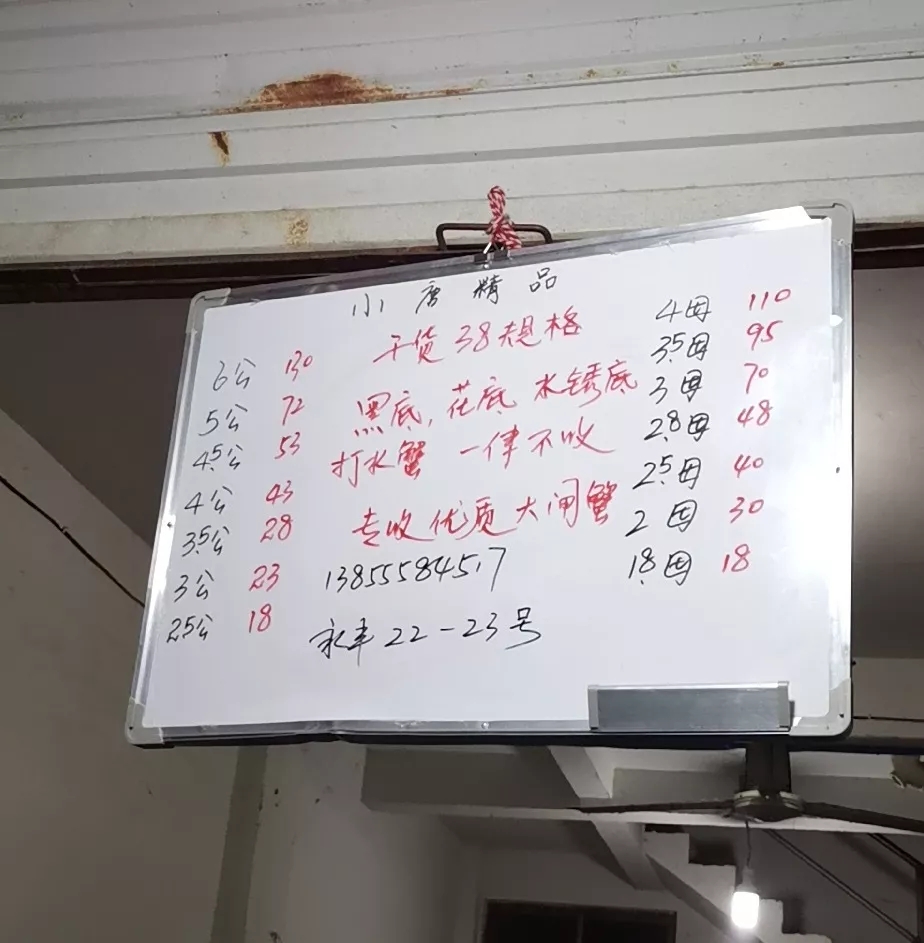 小唐精品
干货38规格
黑底,花底 水锈底
打水蟹 一律不收
专收优质大闸蟹
13855584517
永丰22-23号
6公 130
5公 72
4.5公 53
4公 43
3.5公 28
3公 23
25公 18
4母 110
3.5母 95
3母 70
2.8母 48
2.5母 40
2母 30
1.8母 18